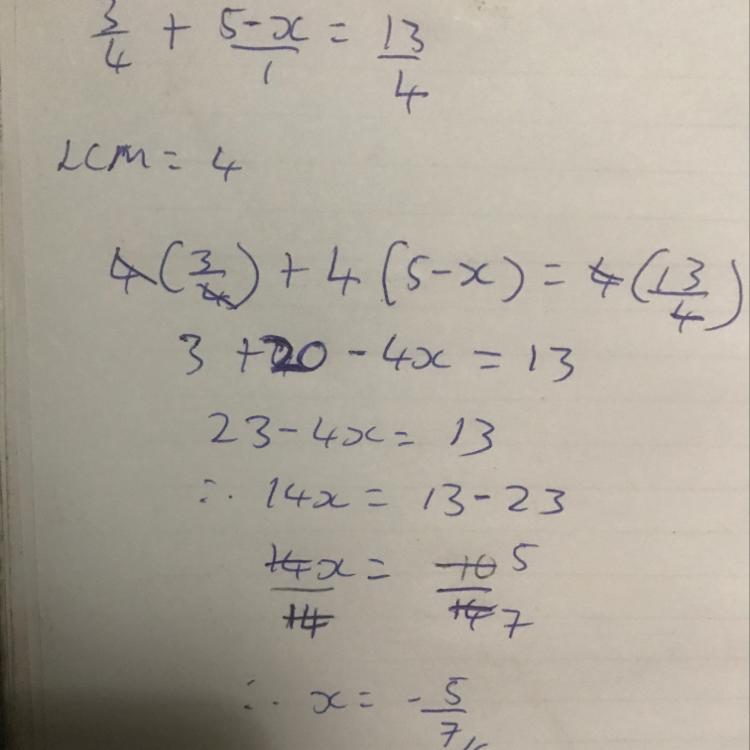 3/4 + 5-x/1 = 13/4
LCM = 4
4(3/4) + 4(5-x) = 4(13/4)
3 + 20 - 4x = 13
23 - 4x = 13
∴ 14x = 13 - 23
14x/14 = -10 5/14 7
∴ x = -5/7